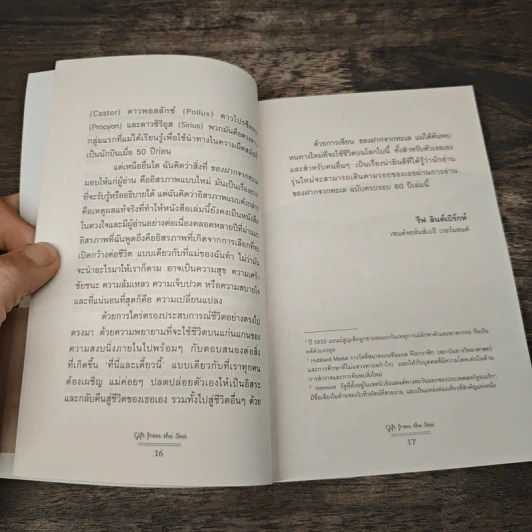 (Castor) ดาวพอลลักซ์ (Pollux) ดาวโปรซิออน
(Procyon) และดาวซิริอุส (Sirius) พวกมันคือดวงดาว
กลุ่มแรกที่แม่ได้เรียนรู้เพื่อใช้นำทางในความมืดสมัยที่
เป็นนักบินเมื่อ 50 ปีก่อน
แต่เหนืออื่นใด ฉันคิดว่าสิ่งที่ ของฝากจากทะเล
มอบให้แก่ผู้อ่าน คืออิสรภาพแบบใหม่ มันเป็นเรื่องยาก
ที่จะรับรู้หรืออธิบายได้ แต่ฉันคิดว่าอิสรภาพแบบดังกล่าว
คือเหตุผลแท้จริงที่ทำให้หนังสือเล่มนี้ยังคงเป็นหนังสือ
ในดวงใจและมีผู้อ่านอย่างต่อเนื่องตลอดหลายปีที่ผ่านมา
อิสรภาพที่ฉันพูดถึงคืออิสรภาพที่เกิดจากการเลือกที่จะ
เปิดกว้างต่อชีวิต แบบเดียวกับที่แม่ของฉันทำ ไม่ว่ามัน
จะนำอะไรมาให้เราก็ตาม อาจเป็นความสุข ความเศร้า
ชัยชนะ ความล้มเหลว ความเจ็บปวด หรือความสบายใจ
และที่แน่นอนที่สุดก็คือ ความเปลี่ยนแปลง
ด้วยการไตร่ตรองประสบการณ์ชีวิตอย่างตรงไป
ตรงมา ด้วยความพยายามที่จะใช้ชีวิตบนแก่นแกนของ
ความสงบนิ่งภายในไปพร้อมๆ กับตอบสนองต่อสิ่ง
ที่เกิดขึ้น 'ที่นี่และเดี๋ยวนี้' แบบเดียวกับที่เราทุกคน
ต้องเผชิญ แม่ค่อยๆ ปลดปล่อยตัวเองให้เป็นอิสระ
และกลับคืนสู่ชีวิตของเธอเอง รวมทั้งไปสู่ชีวิตอื่นๆ ด้วย
Gift from the Sea
16
ด้วยการเขียน ของฝากจากทะเล แม่ได้ค้นพบ
หนทางใหม่ที่จะใช้ชีวิตบนโลกใบนี้ ทั้งสำหรับตัวเธอเอง
และสำหรับคนอื่นๆ เป็นเรื่องน่ายินดีที่ได้รู้ว่านักอ่าน
รุ่นใหม่จะสามารถเดินตามรอยของเธอผ่านการอ่าน
ของฝากจากทะเล ฉบับครบรอบ 60 ปีเล่มนี้
รีฟ ลินด์เบิร์กห์
เซนต์จอห์นส์เบรี เวอร์มอนต์
¹ ปี 1932 แอนน์สูญเสียลูกชายคนแรกในเหตุการณ์ลักพาตัวและฆาตกรรม ถือเป็น
คดีดังเขย่ายุค
² Hubbard Medal รางวัลที่สมาคมเนชั่นแนล จีโอกราฟิก
³ Vermont รัฐที่ตั้งอยู่ในเขตนิวอิงแลนด์ทางตะวันออกของประเทศสหรัฐอเมริกา
Gift from the Sea
17